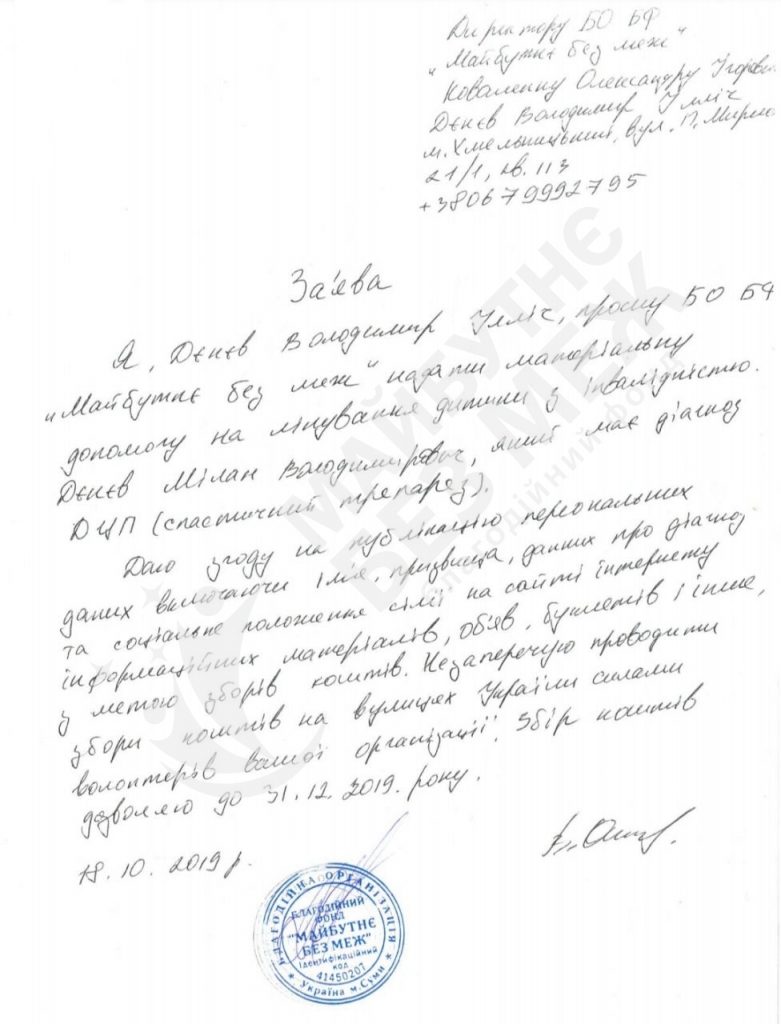 Директору БО БФ
"Майбутнє без меж"
Коваленку Олександру Ігорови
Дєнєв Володимир Ілліч
м. Хмельницький, вул. П. Мирно
21/1, кв. 113
+380679992795
За'ява
Я, Дєнєв Володимир Ілліч, прошу БО БФ
"Майбутнє без меж" надати матеріальну
допомогу на лікування дитини з інвалідністю.
Дєнєв Мілан Володимирович, який має діагноз
ДЦП (спастичний трепарез).
Даю згоду на публікацію персональних
даних включаючи ім'я, призвища, данних про діагноз
та соціальне положення сімї на сайті інтернету
інформаційних матеріалів, об'яв, буклетів і інше,
з метою зборів коштів. Незаперечую проводити
збори коштів на вулицях України силами
волонтерів вашої організації. Збір коштів
дозволяю до 31.12.2019. року.
18.10.2019 р.
БЛАГОДІЙНА ОРГАНІЗАЦІЯ
БЛАГОДІЙНИЙ
ФОНД
"МАЙБУТНЄ
БЕЗ МЕЖ"
Ідентифікаційний
код
41450207
* Україна м.Суми *
МАЙБУТНЄ
БЕЗ МЕЖ
благодійний фонд